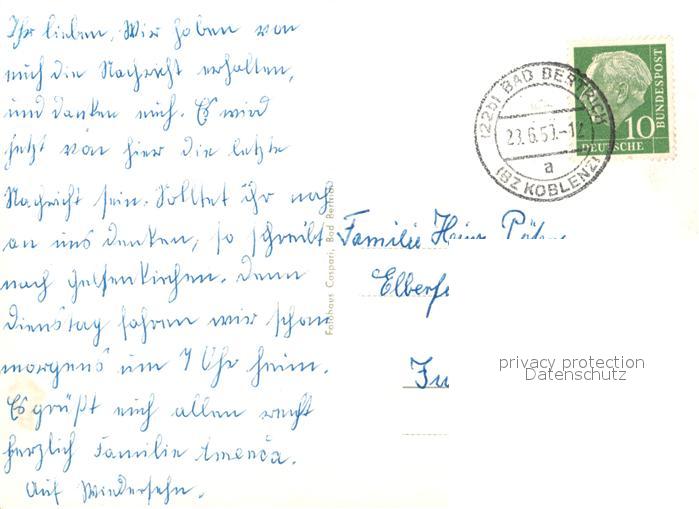 Ihr lieben, Wir haben von
euch die Nachricht erhalten,
und danken euch. Es wird
jetzt von hier die letzte
Nachricht sein. Solltet ihr noch
an uns denken, so schreibt
nach Gelsenkirchen. Denn
Dienstag fahren wir schon
morgens um 7 Uhr heim.
Es grüßt euch allen recht
herzlich Familie
Auf Wiedersehn.
Fotohaus Caspari, Bad Bertrich
(22b) BAD BERTRICH
23.6.57.-12
a
(BZ KOBLENZ)
10
DEUTSCHE BUNDESPOST
Familie Heinz
Elberfe
privacy protection
Datenschutz